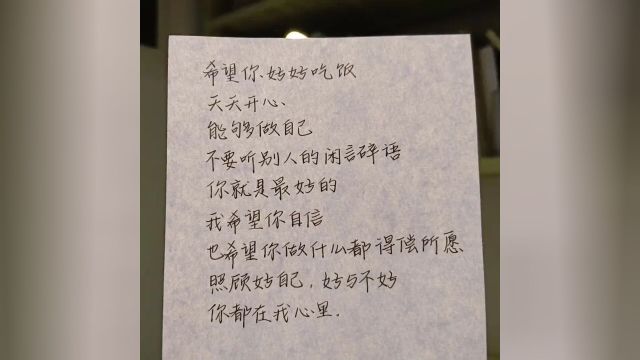 希望你好好吃饭
天天开心、
能够做自己
不要听别人的闲言碎语
你就是最好的
我希望你自信
也希望你做什么都得偿所愿
照顾好自己，好与不好
你都在我心里.